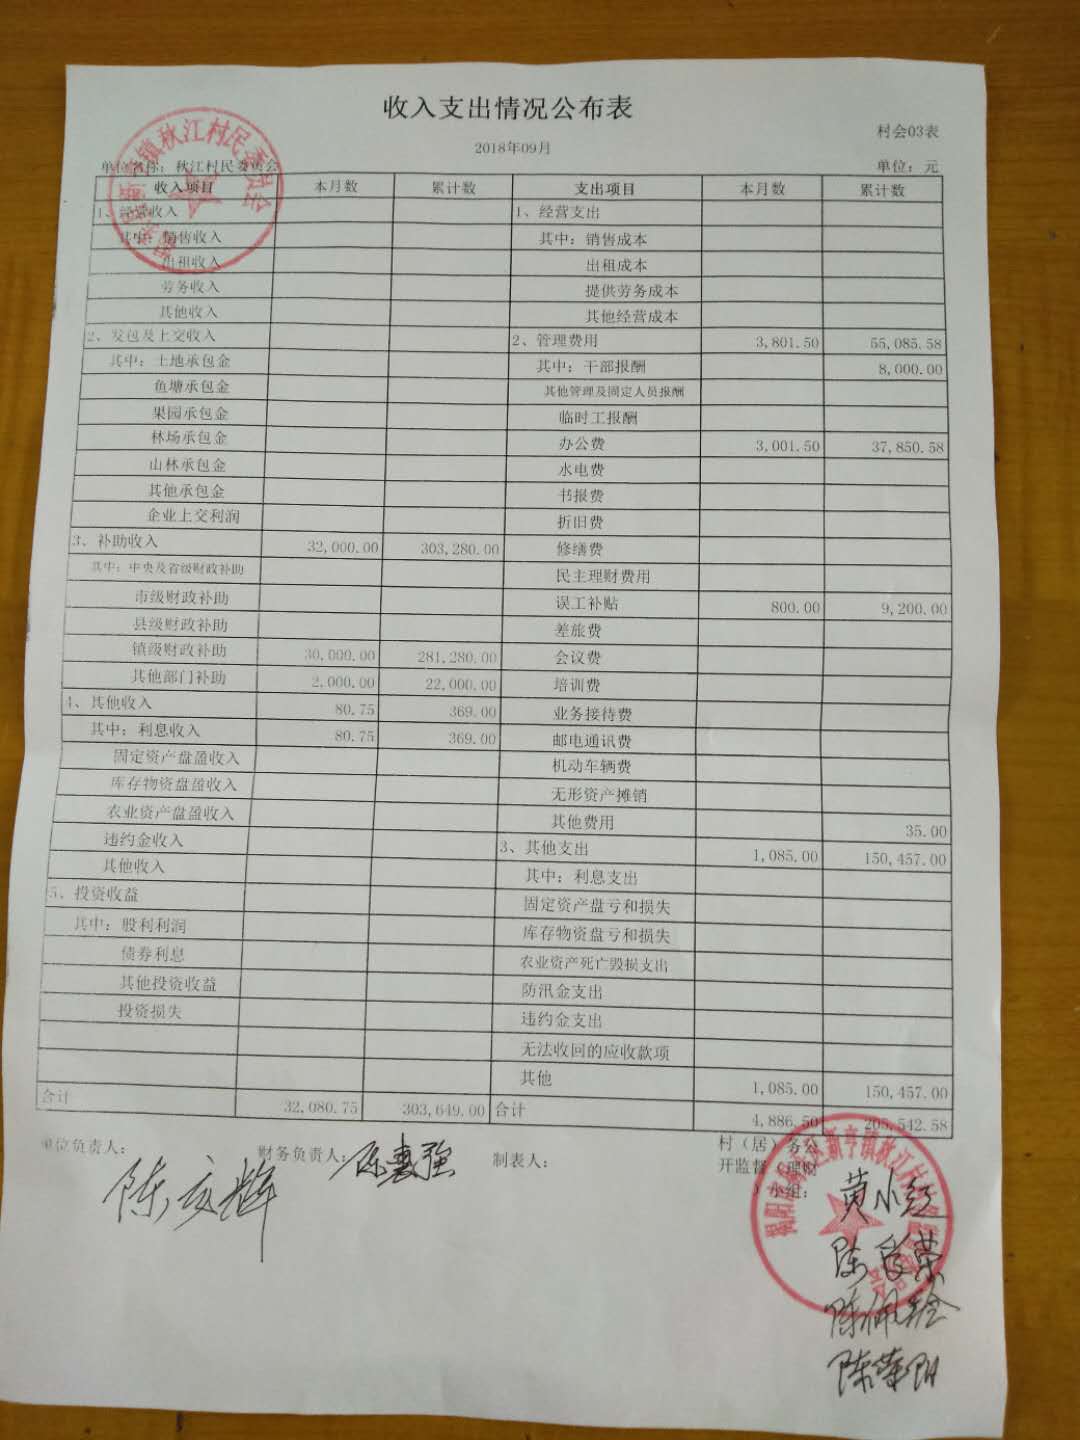 收入支出情况公布表
村会03表
2018年09月
单位名称：秋江村民委员会 单位：元
收入项目 本月数 累计数 支出项目 本月数 累计数
1、经营收入 1、经营支出
其中：销售收入 其中：销售成本
出租收入 出租成本
劳务收入 提供劳务成本
其他收入 其他经营成本
2、发包及上交收入 2、管理费用 3,801.50 55,085.58
其中：土地承包金 其中：干部报酬 8,000.00
鱼塘承包金 其他管理及固定人员报酬
果园承包金 临时工报酬
林场承包金 办公费 3,001.50 37,850.58
山林承包金 水电费
其他承包金 书报费
企业上交利润 折旧费
3、补助收入 32,000.00 303,280.00 修缮费
其中：中央及省级财政补助 民主理财费用
市级财政补助 误工补贴 800.00 9,200.00
县级财政补助 差旅费
镇级财政补助 30,000.00 281,280.00 会议费
其他部门补助 2,000.00 22,000.00 培训费
4、其他收入 80.75 369.00 业务接待费
其中：利息收入 80.75 369.00 邮电通讯费
固定资产盘盈收入 机动车辆费
库存物资盘盈收入 无形资产摊销
农业资产盘盈收入 其他费用 35.00
违约金收入 3、其他支出 1,085.00 150,457.00
其他收入 其中：利息支出
5、投资收益 固定资产盘亏和损失
其中：股利利润 库存物资盘亏和损失
债券利息 农业资产死亡毁损支出
其他投资收益 防汛金支出
投资损失 违约金支出
无法收回的应收款项
其他 1,085.00 150,457.00
合计 32,080.75 303,649.00 合计 4,886.50 205,542.58
单位负责人： 财务负责人： 制表人： 村（居）务公
开监督（理财
）小组：
黄小红